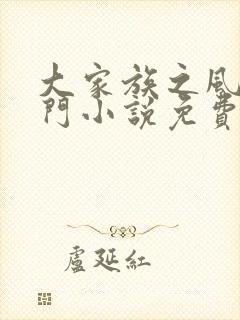 大家族之風
門小説免費
盧延紅